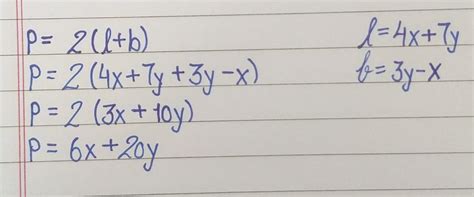 P = 2(l+b)
P = 2(4x+7y+3y-x)
P = 2(3x+10y)
P = 6x+20y
l = 4x+7y
b = 3y-x